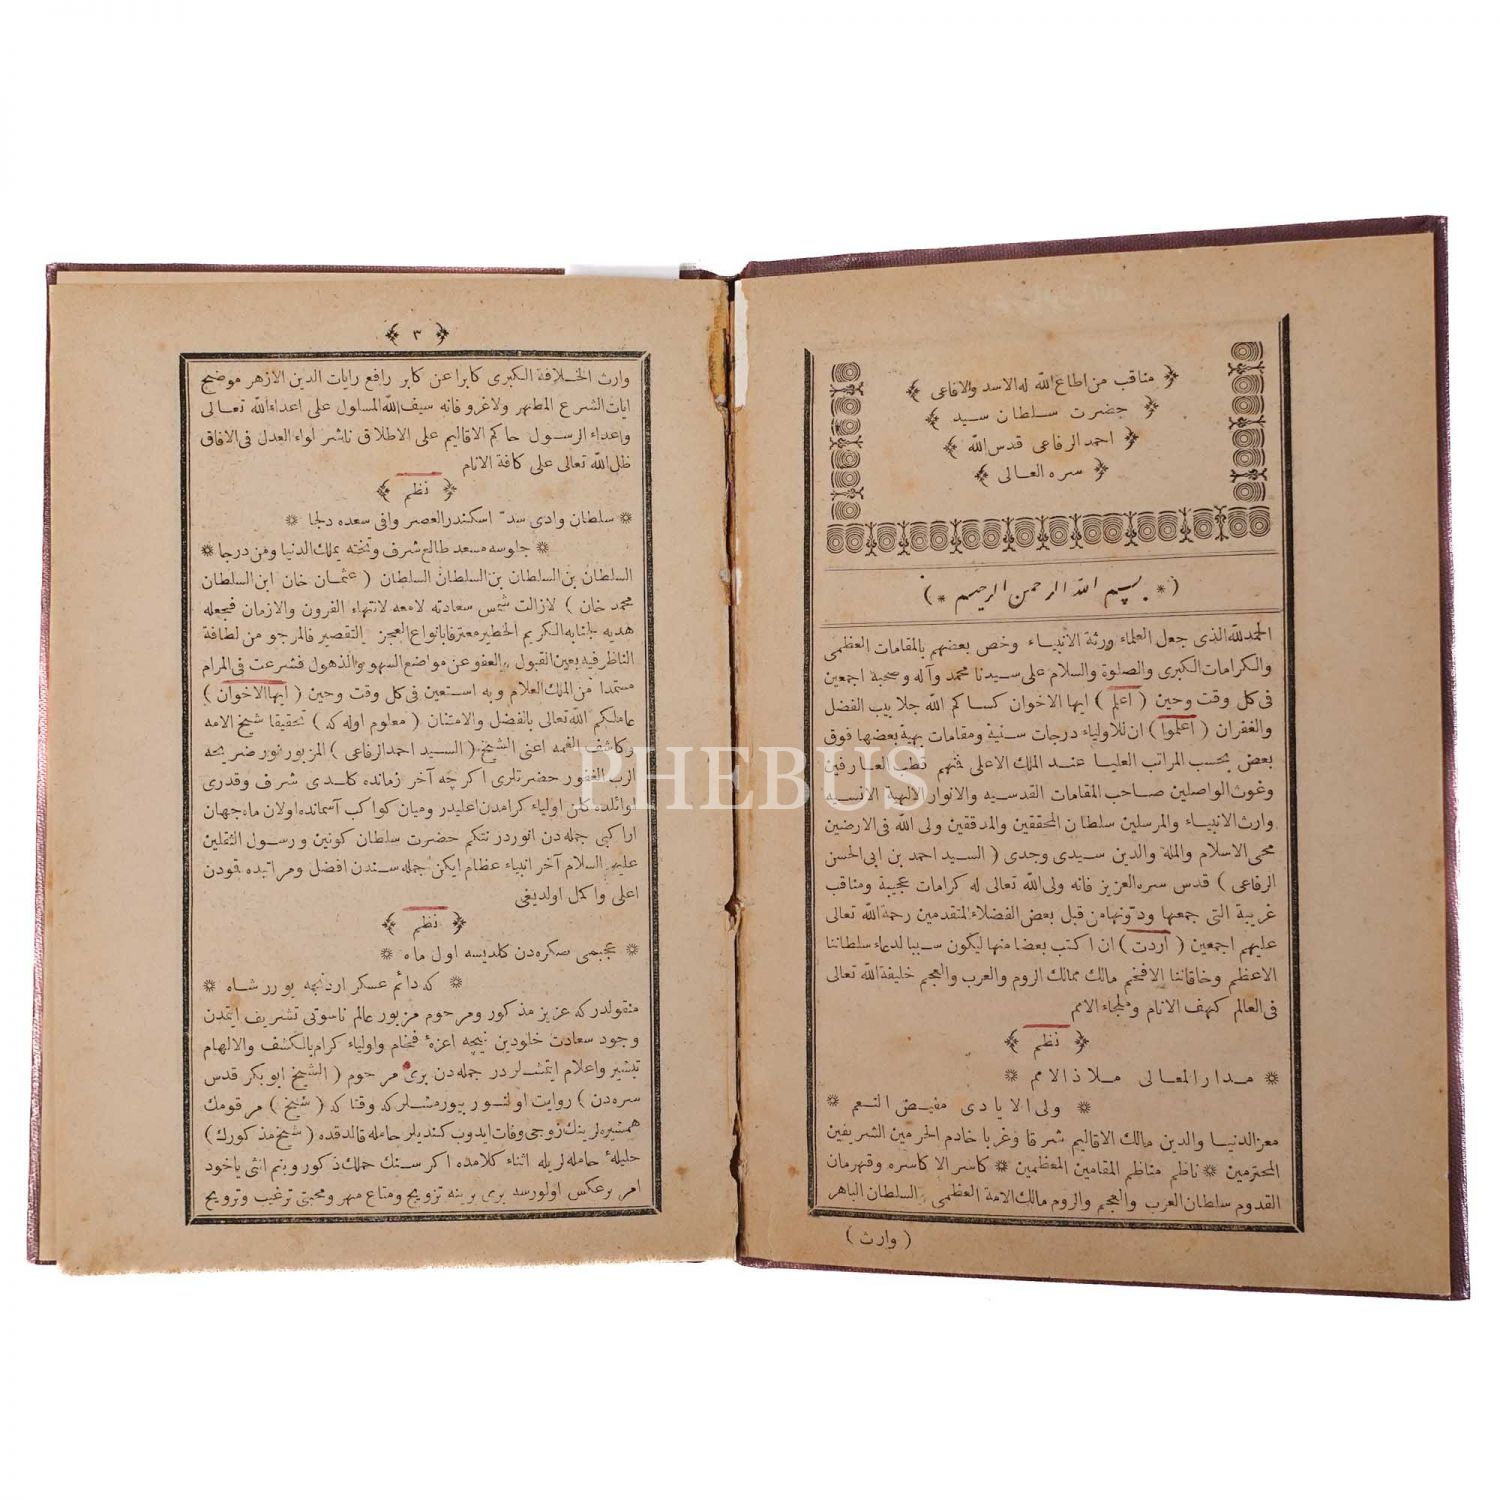 ﴿ مناقب من اطاع الله له الاسد والافاعى ﴾
﴿ حضرت سلطان سيد ﴾
﴿ احمد الرفاعى قدس الله ﴾
﴿ سره العالى ﴾
( * بسم الله الرحمن الرحيم * )
الحمد لله الذى جعل العلماء ورثة الانبياء وخص بعضهم بالمقامات العظمى
والكرامات الكبرى والصلوة والسلام على سيدنا محمد وآله وصحبة اجمعين
فى كل وقت وحين ( اعلم ) ايها الاخوان كساكم الله جلابيب الفضل
والغفران ( اعلموا ) ان للاولياء درجات سنية ومقامات بهية بعضها فوق
بعض بحسب المراتب العليا عند الملك الاعلى فنهم قطب العارفين
وغوث الواصلين صاحب المقامات القدسيه والانوار الالهية الانسيه
وارث الانبياء والمرسلين سلطان المحققين والمدققين ولى الله فى الارضين
محى الاسلام والملة والدين سيدى وجدى ( السيد احمد بن ابى الحسن
الرفاعى ) قدس سره العزيز فانه ولى الله تعالى له كرامات عجيبة ومناقب
غريبة التى جمعها ودونها من قبل بعض الفضلاء المتقدمين رحمة الله تعالى
عليهم اجمعين ( اردت ) ان اكتب بعضا منها ليكون سببا لدعاء سلطاننا
الاعظم وخاقاننا الافخم مالك ممالك الروم والعرب والعجم خليفة الله تعالى
فى العالم كهف الانام وملجاء الامم
﴿ نظم ﴾
* مدار المعالى ملاذ الامم *
* ولى الايادى مفيض النعم *
معز الدنيا والدين مالك الاقاليم شرقا وغربا خادم الحرمين الشريفين
المحترمين * ناظم مناظم المقامين المعظمين * كاسر الاكاسره وقهرمان
القدوم سلطان العرب والعجم والروم مالك الامة العظمى السلطان الباهر
( وارث )
﴿ ٣ ﴾
وارث الخلافة الكبرى كابرا عن كابر رافع رايات الدين الازهر موضح
ايات الشرع المطهر ولاغرو فانه سيف الله المسلول على اعداء الله تعالى
واعداء الرسول حاكم الاقاليم على الاطلاق ناشر لواء العدل فى الافاق
ظل الله تعالى على كافة الانام
﴿ نظم ﴾
* سلطان وادى سد اسكندر العصر وافى سعده دلجا *
* جلوسه مسعد طالع شرف وتخته يملك الدنيا ومن درجا *
السلطان بن السلطان بن السلطان السلطان ( عثمان خان ابن السلطان
محمد خان ) لازالت شمس سعادته لامعه لانتهاء القرون والازمان فجعله
هديه لجنابه الكريم الخطير معترفا بانواع العجز التقصير فالمرجو من لطافة
الناظر فيه بعين القبول والعفو عن مواضع السهو والذهول فشرعت فى المرام
مستمدا من الملك العلام وبه استعين فى كل وقت وحين ( ايها الاخوان )
عاملكم الله تعالى بالفضل والامتنان ( معلوم اوله كه ) تحقيقا شيخ الامه
وكاشف الغمه اعنى الشيخ ( السيد احمد الرفاعى ) المزبور نور ضريحه
الرب الغفور حضرتلرى اكرچه آخر زمانده كلدى شرف وقدرى
اوائلده كلن اولياء كرامدن اعليدر وميان كواكب آسمانده اولان ماه جهان
اراكبى جمله دن انوردر نتكم حضرت سلطان كونين ورسول الثقلين
عليه السلام آخر انبياء عظام ايكن جمله سندن افضل ومراتبده قودن
اعلى واكمل اولديغى
﴿ نظم ﴾
* عجبمى صكره دن كلديسه اول ماه *
* كه دائم عسكر اردنجه يورر شاه *
منقولدركه عزيز مذكور ومرحوم مزبور عالم ناسوتى تشريف ايتمدن
وجود سعادت خلودين نيجه اعزهٔ فخام واولياء كرام بالكشف والالهام
تبشير واعلام ايتمشلردر جمله دن برى مرحوم ( الشيخ ابو بكر قدس
سره دن ) روايت اولنور بيورمشلركه وقتا كه ( شيخ ) مرقومك
همشيره لرينك زوجى وفات ايدوب كنديلر حامله قالدقده ( شيخ مذكورك )
حليلهٔ حامله لريله اثناء كلامده اكر سنك حملك ذكور وبنم انثى ياخود
امر برعكس اولورسه برى برينه تزويج ومتاع مهر ومحبتى ترغيب وترويج
PHEBUS